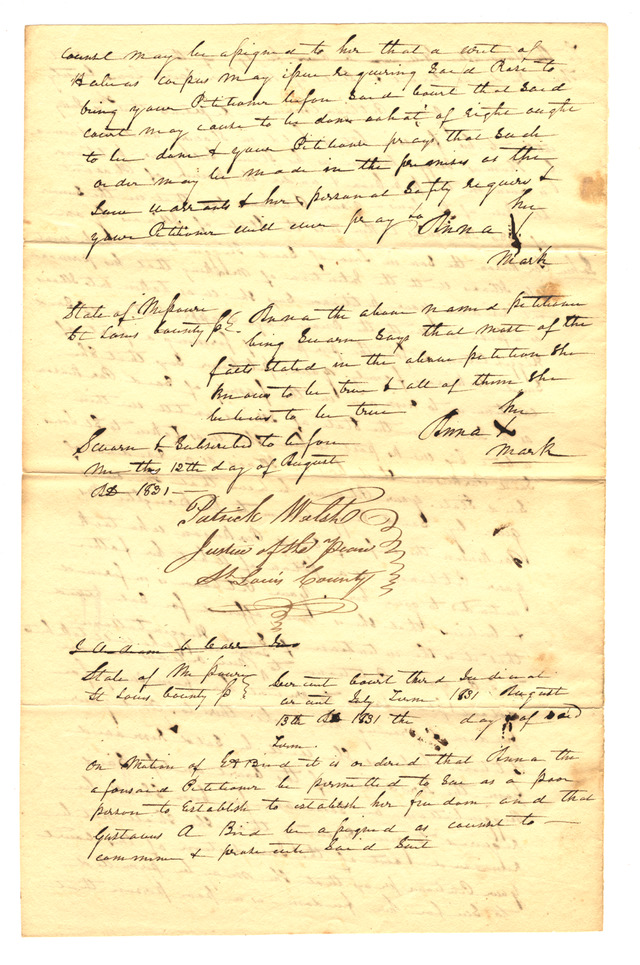 Counsel may be assigned to her that a writ of
Habeas corpus may issue requiring Said Rose to
bring your Petitioner before Said Court that Said
court may cause to be done what of Right ought
to be done & your Petitioner prays that Such
order may be made in the premises as the
Law warrants & her personal Safety require &
your Petitioner will ever pray &c
Anna her
mark
State of Missouri
St Louis County Ss
Anna the above named petitioner
being Sworn Says that most of the
facts Stated in the above petition She
knows to be true & all of them She
believes to be true
her
Anna X
mark
Sworn & Subscribed to before
me this 12th day of August
AD 1831
Patrick Walsh
Justice of the Peace
St Louis County
State of Missouri
St Louis County Ss
Circuit Court third Judicial
circuit July Term 1831 August
13th AD 1831 the day of said
Term
On Motion of G A Bird it is ordered that Anna the
aforesaid Petitioner be permitted to Sue as a poor
person to Establish to establish her freedom and that
Gustavus A Bird be assigned as counsel to
commence & prosecute Said Suit